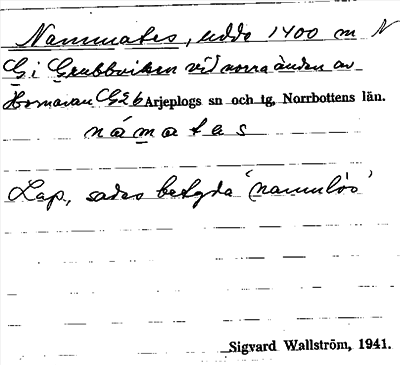 Nammates, udde 1400 m N
G i Grubbviken vid norra ändan av
Hornavan G26 Arjeplogs sn och tg, Norrbottens län.
námates
Lap., sades betyda 'namnlös'
Sigvard Wallström, 1941.